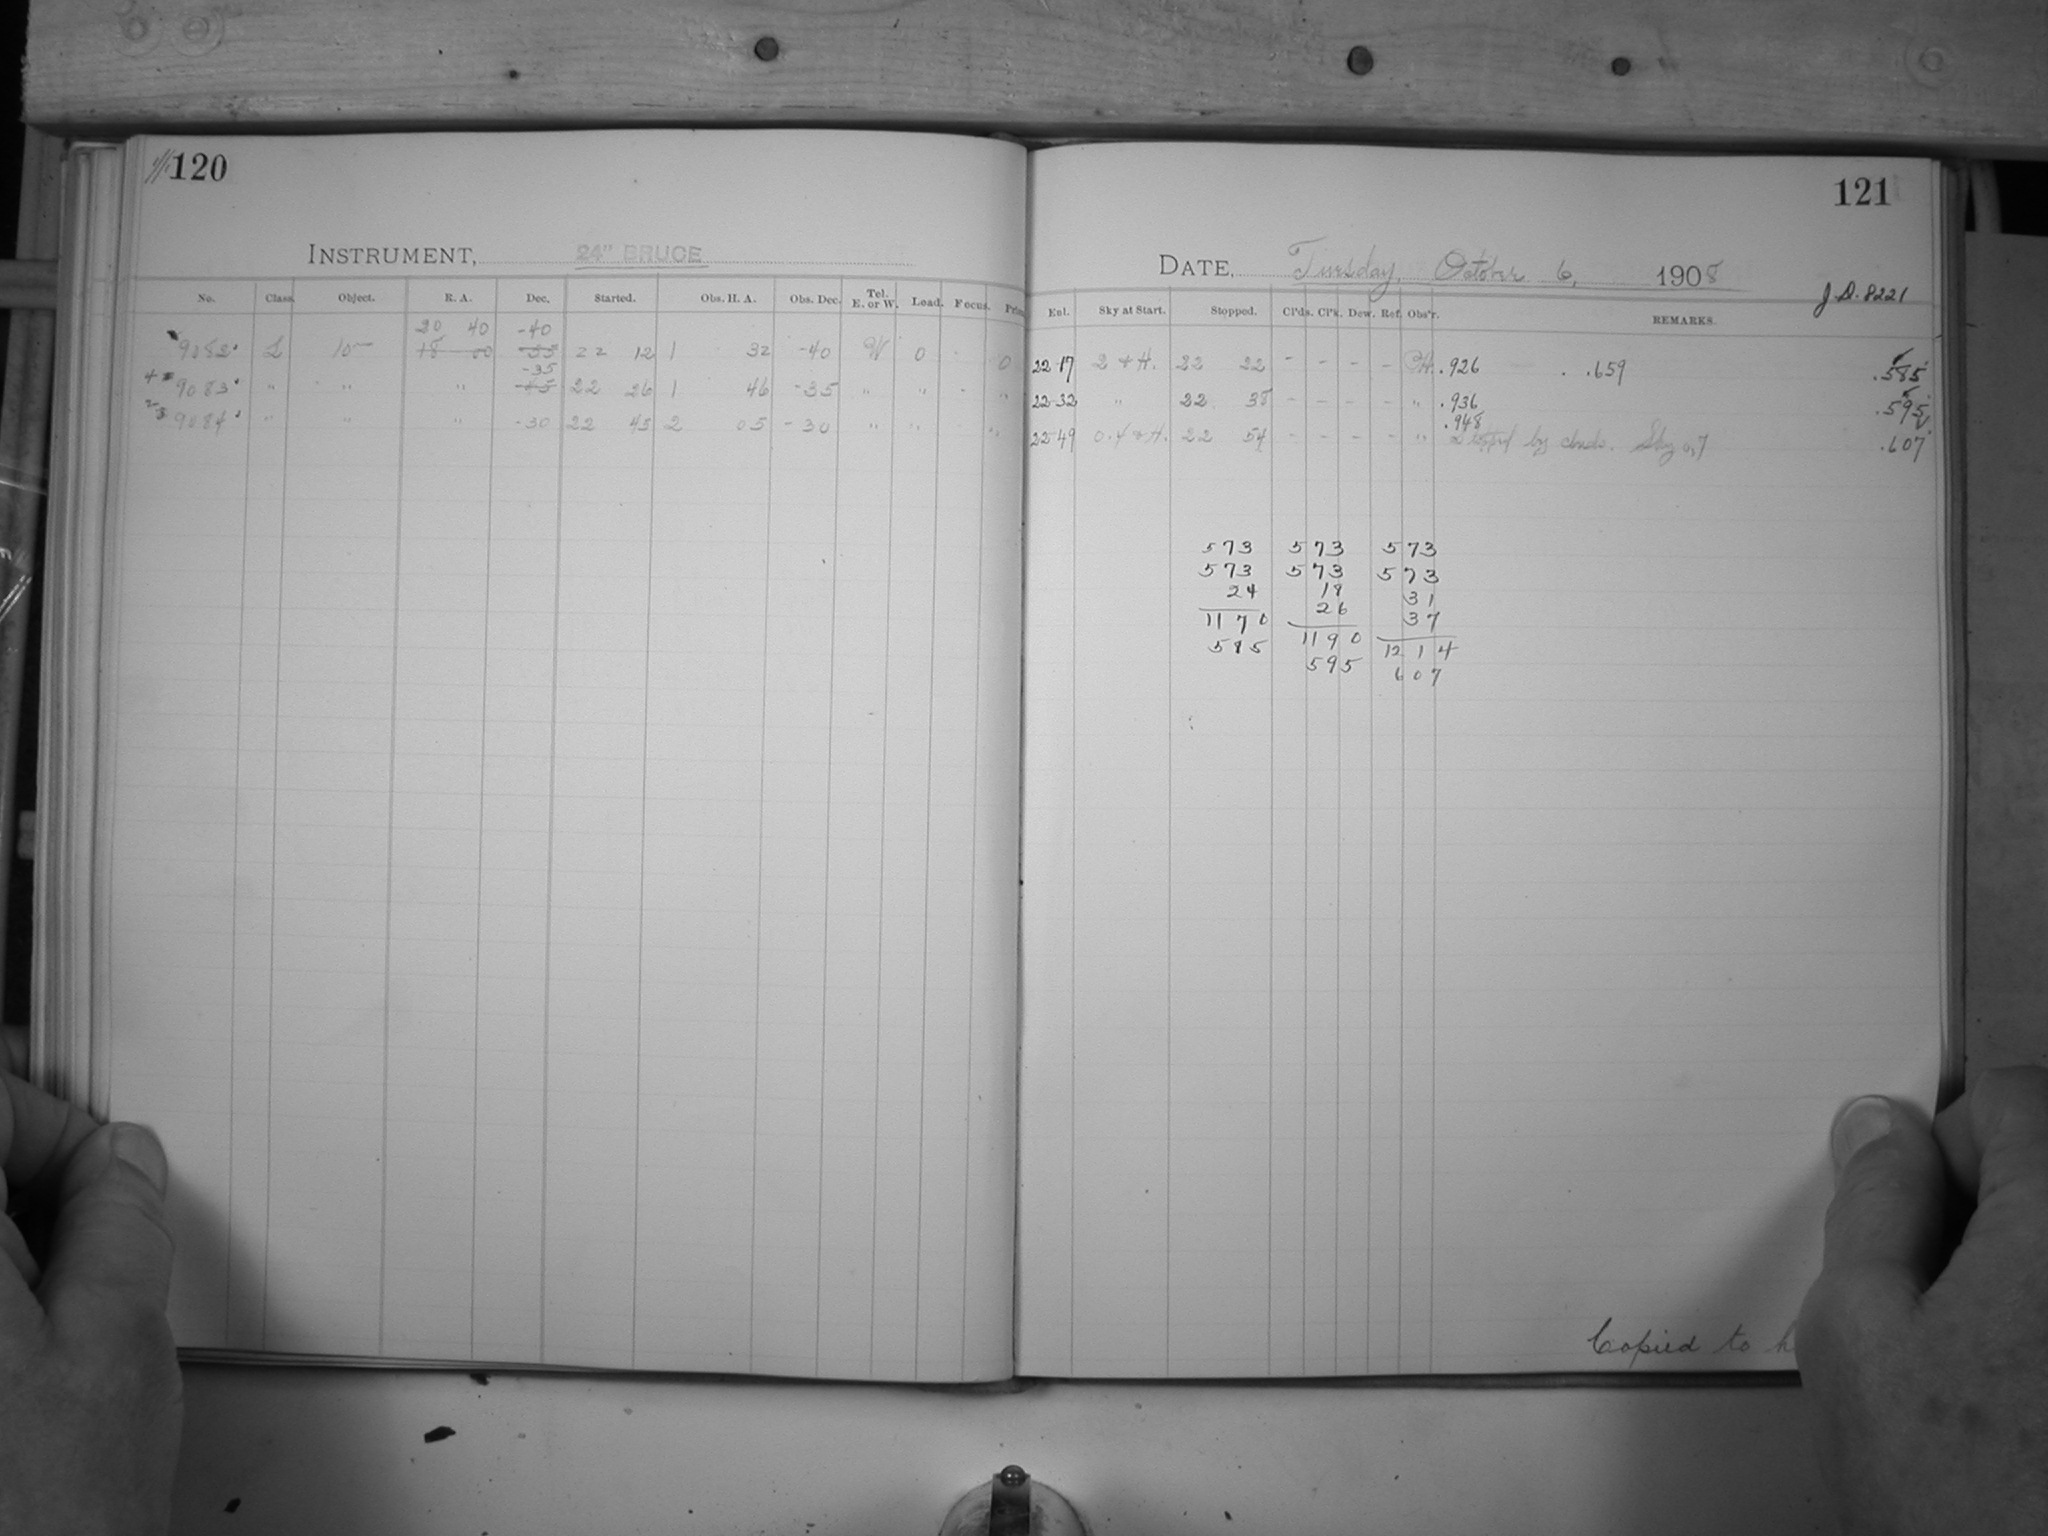 120
INSTRUMENT, 24" BRUCE
No. Class. Object. R. A. Dec. Started. Obs. H. A. Obs. Dec. Tel. E. or W. Load. Focus.
20 40 -40
9082 L 10m 18 00 -55 22 12 1 32 -40 W 0 - 0
-35
4 9083 " " " -65 22 26 1 46 -35 " " - "
9084 " " " -30 22 45 2 05 -30 " " - "
121
DATE, Tuesday, October 6, 1908
J.D. 8221
Enl. Sky at Start. Stopped. Cl'ds. Cl'k. Dew. Ref. Obs'r. REMARKS.
22-17 2 + H. 22 22 - - - - .926 .659 .585
22-32 " 22 38 - - - - " .936 .595
.948
22-49 0.4 + H. 22 54 - - - - " by clouds. Sky 0,7 .607
573 573 573
573 573 573
24 18 31
26 37
1170 1190 1214
585 595 607
Copied to